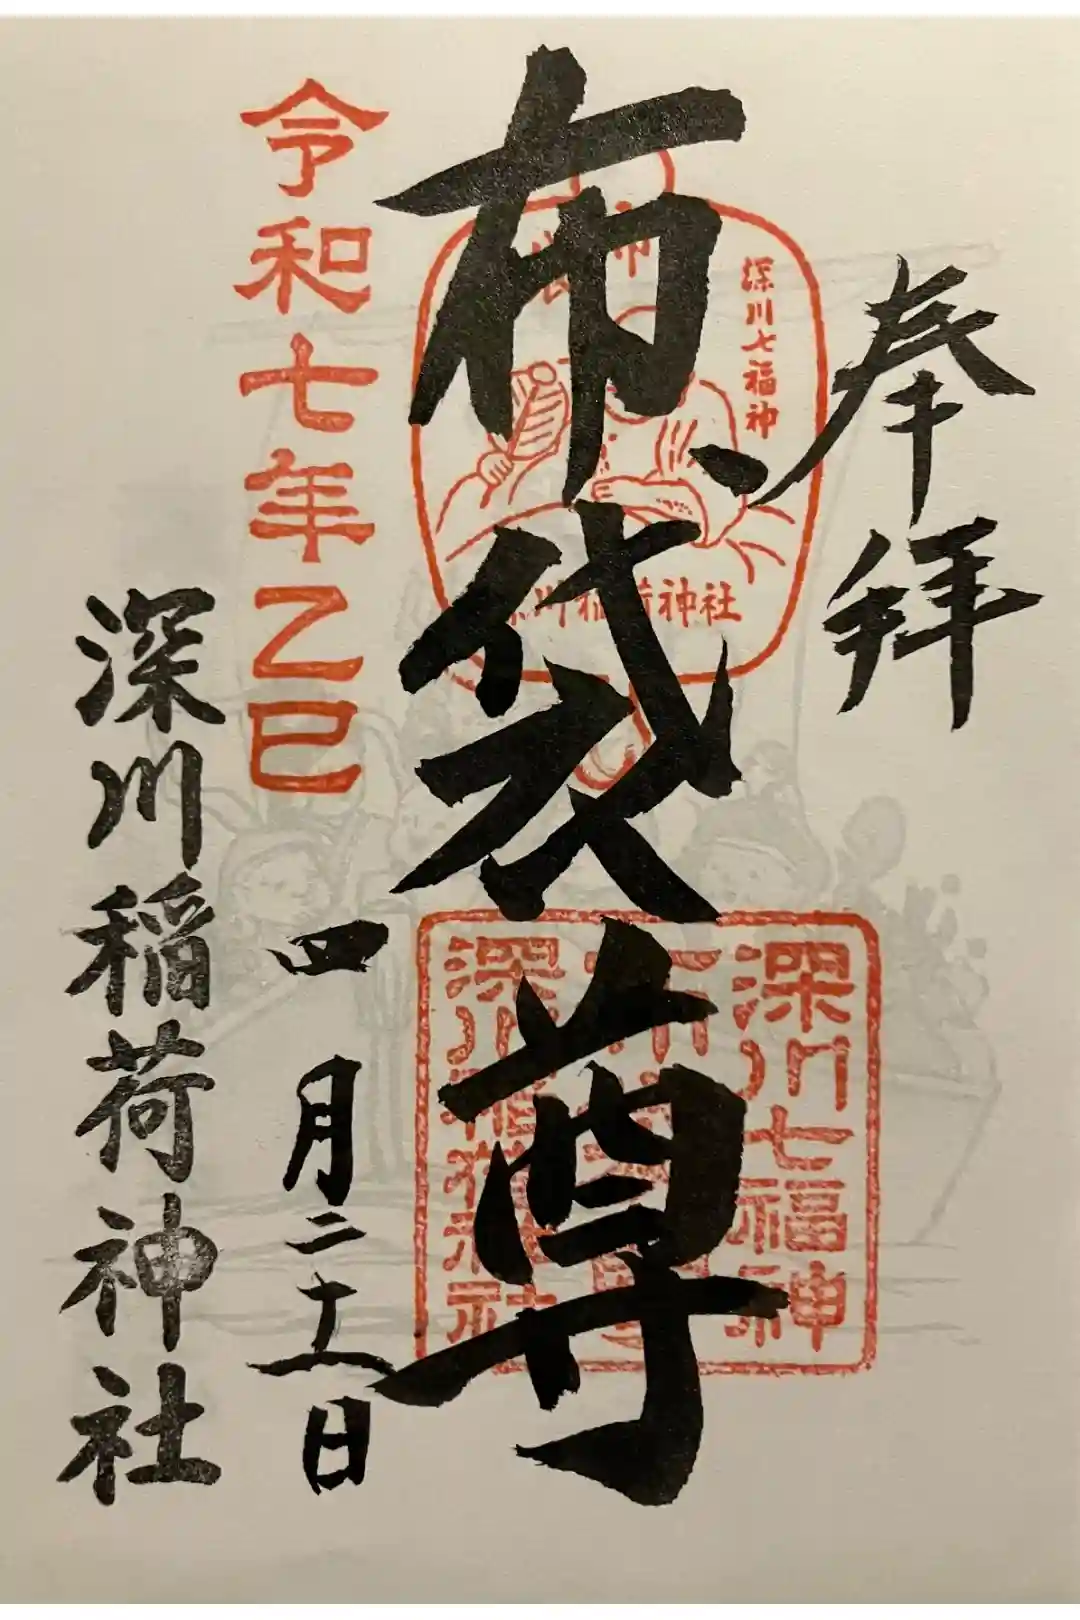 奉拝
深川七福神
布袋
深川稲荷神社
布袋尊
深川七福神
布袋尊
深川稲荷神社
令和七年乙巳
四月二十一日
深川稲荷神社